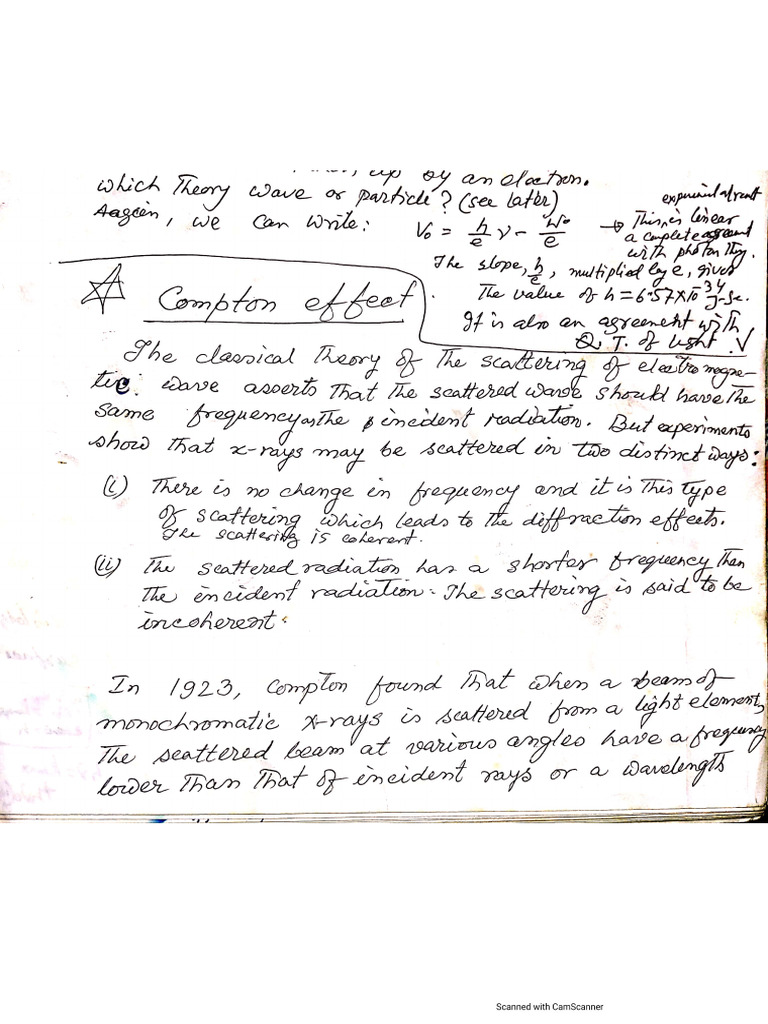 up by an electron.
which Theory wave or particle? (see later)
Aagein, we can write: V₀ = h/e ν - W₀/e
→ This is linear
a complete agreement
with photon theory.
The slope, h/e, multiplied by e, gives
The value of h = 6.57×10⁻³⁴ J-se.
It is also an agreement with
Q. T. of light.
Compton effect
The classical Theory of The scattering of electromagne-
tic wave asserts That The scattered wave should have The
same frequency as The incident radiation. But experiments
show That x-rays may be scattered in two distinct ways:
(i) There is no change in frequency and it is This type
of scattering which leads to The diffraction effects.
The scattering is coherent.
(ii) The scattered radiation has a shorter frequency Then
The incident radiation. The scattering is said to be
incoherent.
In 1923, Compton found That when a beam of
monochromatic x-rays is scattered from a light element,
The scattered beam at various angles have a frequency
lower Than That of incident rays or a wavelength
Scanned with CamScanner